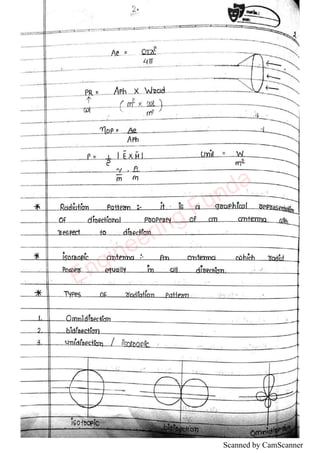 2.
Ae = Gλ²
4π
PR = Aph x Wrad
↑
W ( m² x W )
m²
ηap = Ae
Aph
P = 1 | E x H | Unit = W
2 m²
V . A
m m
* Radiation Pattern :- it is a graphical representation
OF directional Property Of an antenna with
respect to direction
* isotropic antenna :- An antenna which radiat
Power equally in all direction.
* Types OF radiation Pattern
1. Omnidirection
2. bidirection
3. unidirection / isotropic
isotropic bidirection Omnidirection
Engineering Funda
Scanned by CamScanner